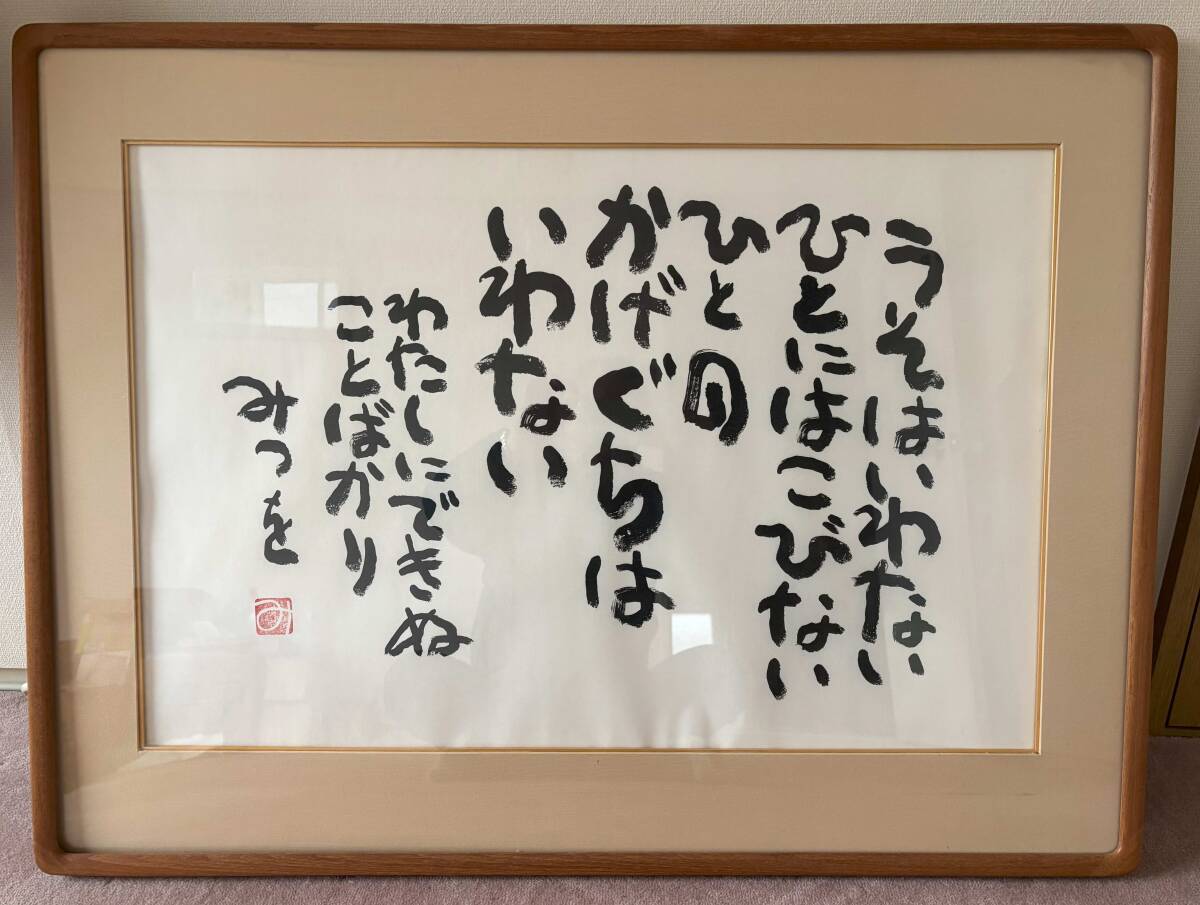 うそはいわない
ひとにはこびない
ひとの
かげぐちは
いわない
わたしにできぬ
ことばかり
みつを